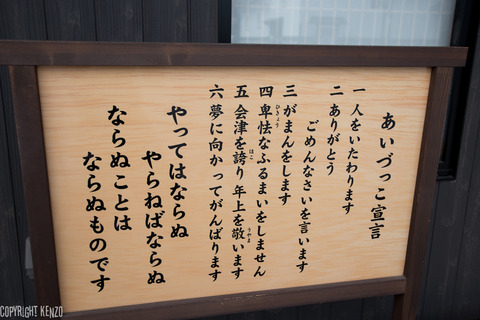 あいづっこ宣言
一 人をいたわります
二 ありがとう
ごめんなさいを言います
三 がまんをします
四 卑怯なふるまいをしません
五 会津を誇り年上を敬います
六 夢に向かってがんばります
やってはならぬ
やらねばならぬ
ならぬことは
ならぬものです
ひきょう
ほこ
うやま
COPYRIGHT KENZO